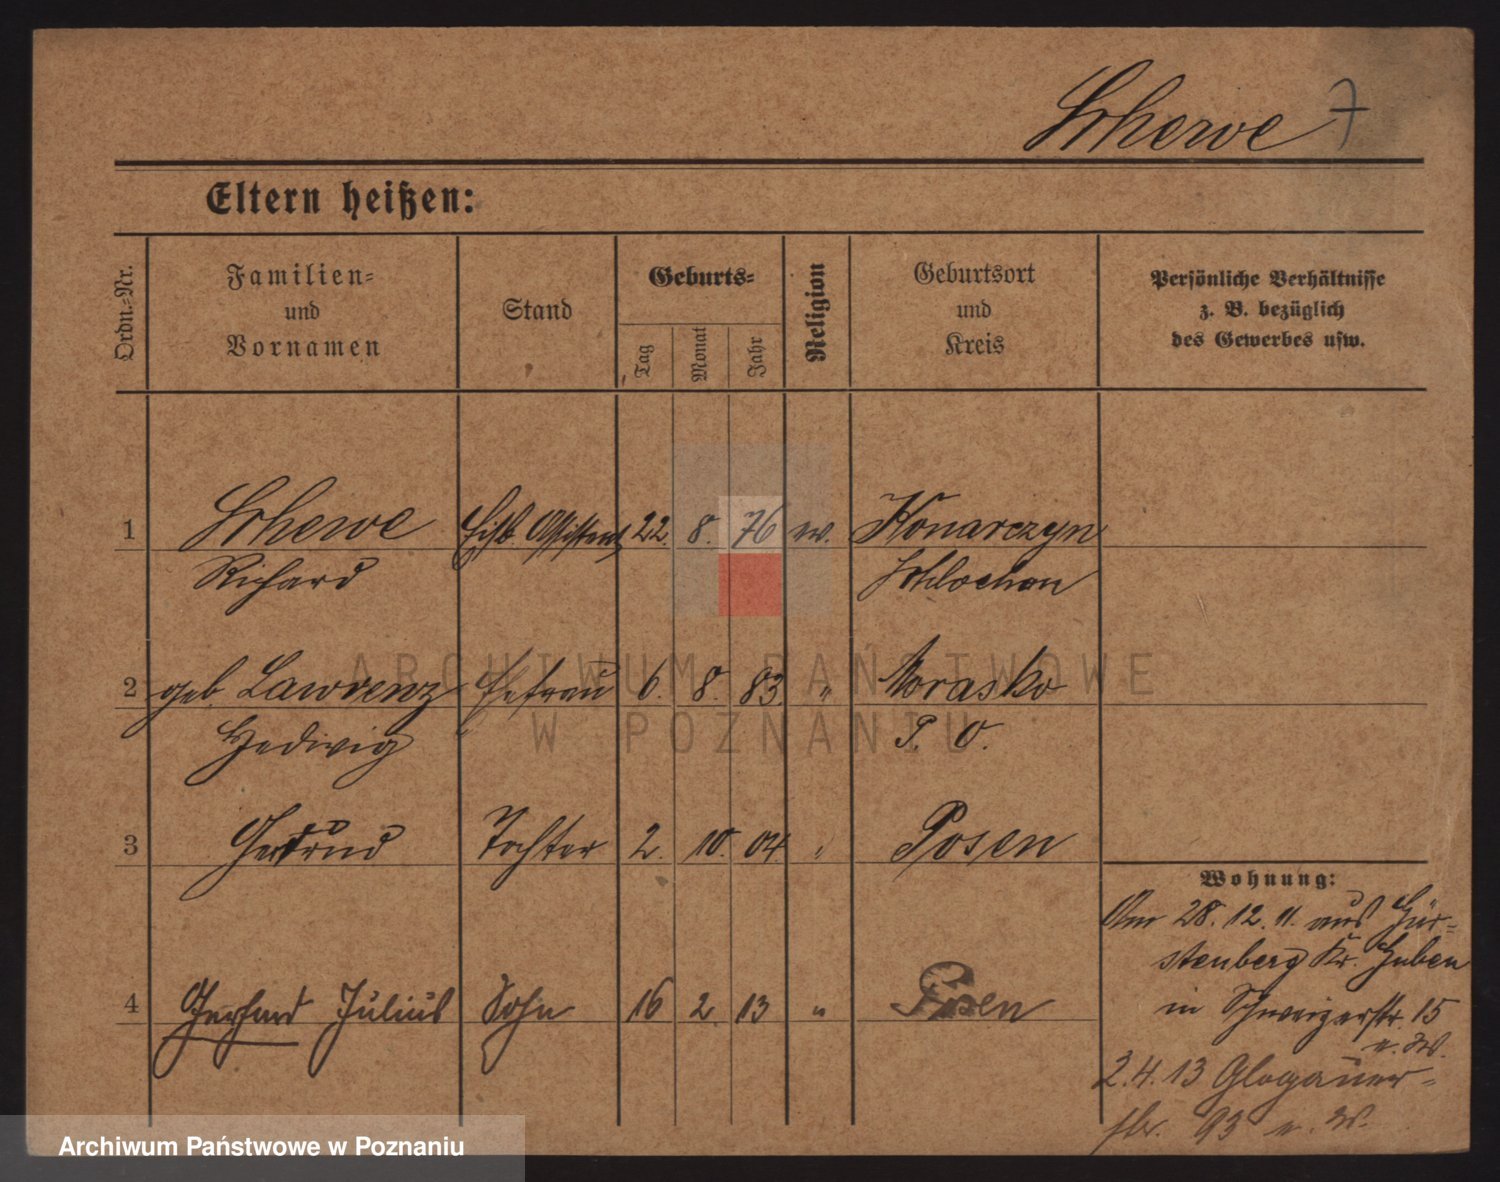 Scherwe 7
Eltern heißen:
Ordn.=Nr.
Familien=
und
Vornamen
Stand
Geburts=
Tag
Monat
Jahr
Religion
Geburtsort
und
Kreis
Persönliche Verhältnisse
z. B. bezüglich
des Gewerbes usw.
1 Scherwe Eisb. Assistent 22. 8. 76 ev. Konarczyn
Richard Schlochau
2 geb. Lawrenz Ehefrau 6. 8. 83. " Morasko
Hedwig P. O.
3 Gertrud Tochter 2. 10. 04 " Posen
Wohnung:
Am 28. 12. 11. aus Für=
stenberg Kr. Guben
4 Gerhard Julius Sohn 16 2. 13 " Posen
in Schweizerstr. 15
2. 4. 13 Glogauer=
str. 93
ARCHIWUM PAŃSTWOWE
W POZNANIU
Archiwum Państwowe w Poznaniu